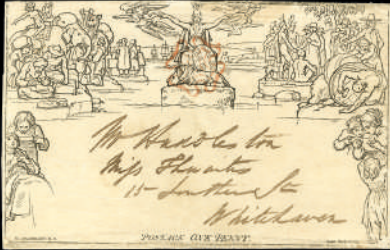 Mr Huddleston
Miss Thwaites
15
Whitehaven
POSTAGE ONE PENNY.